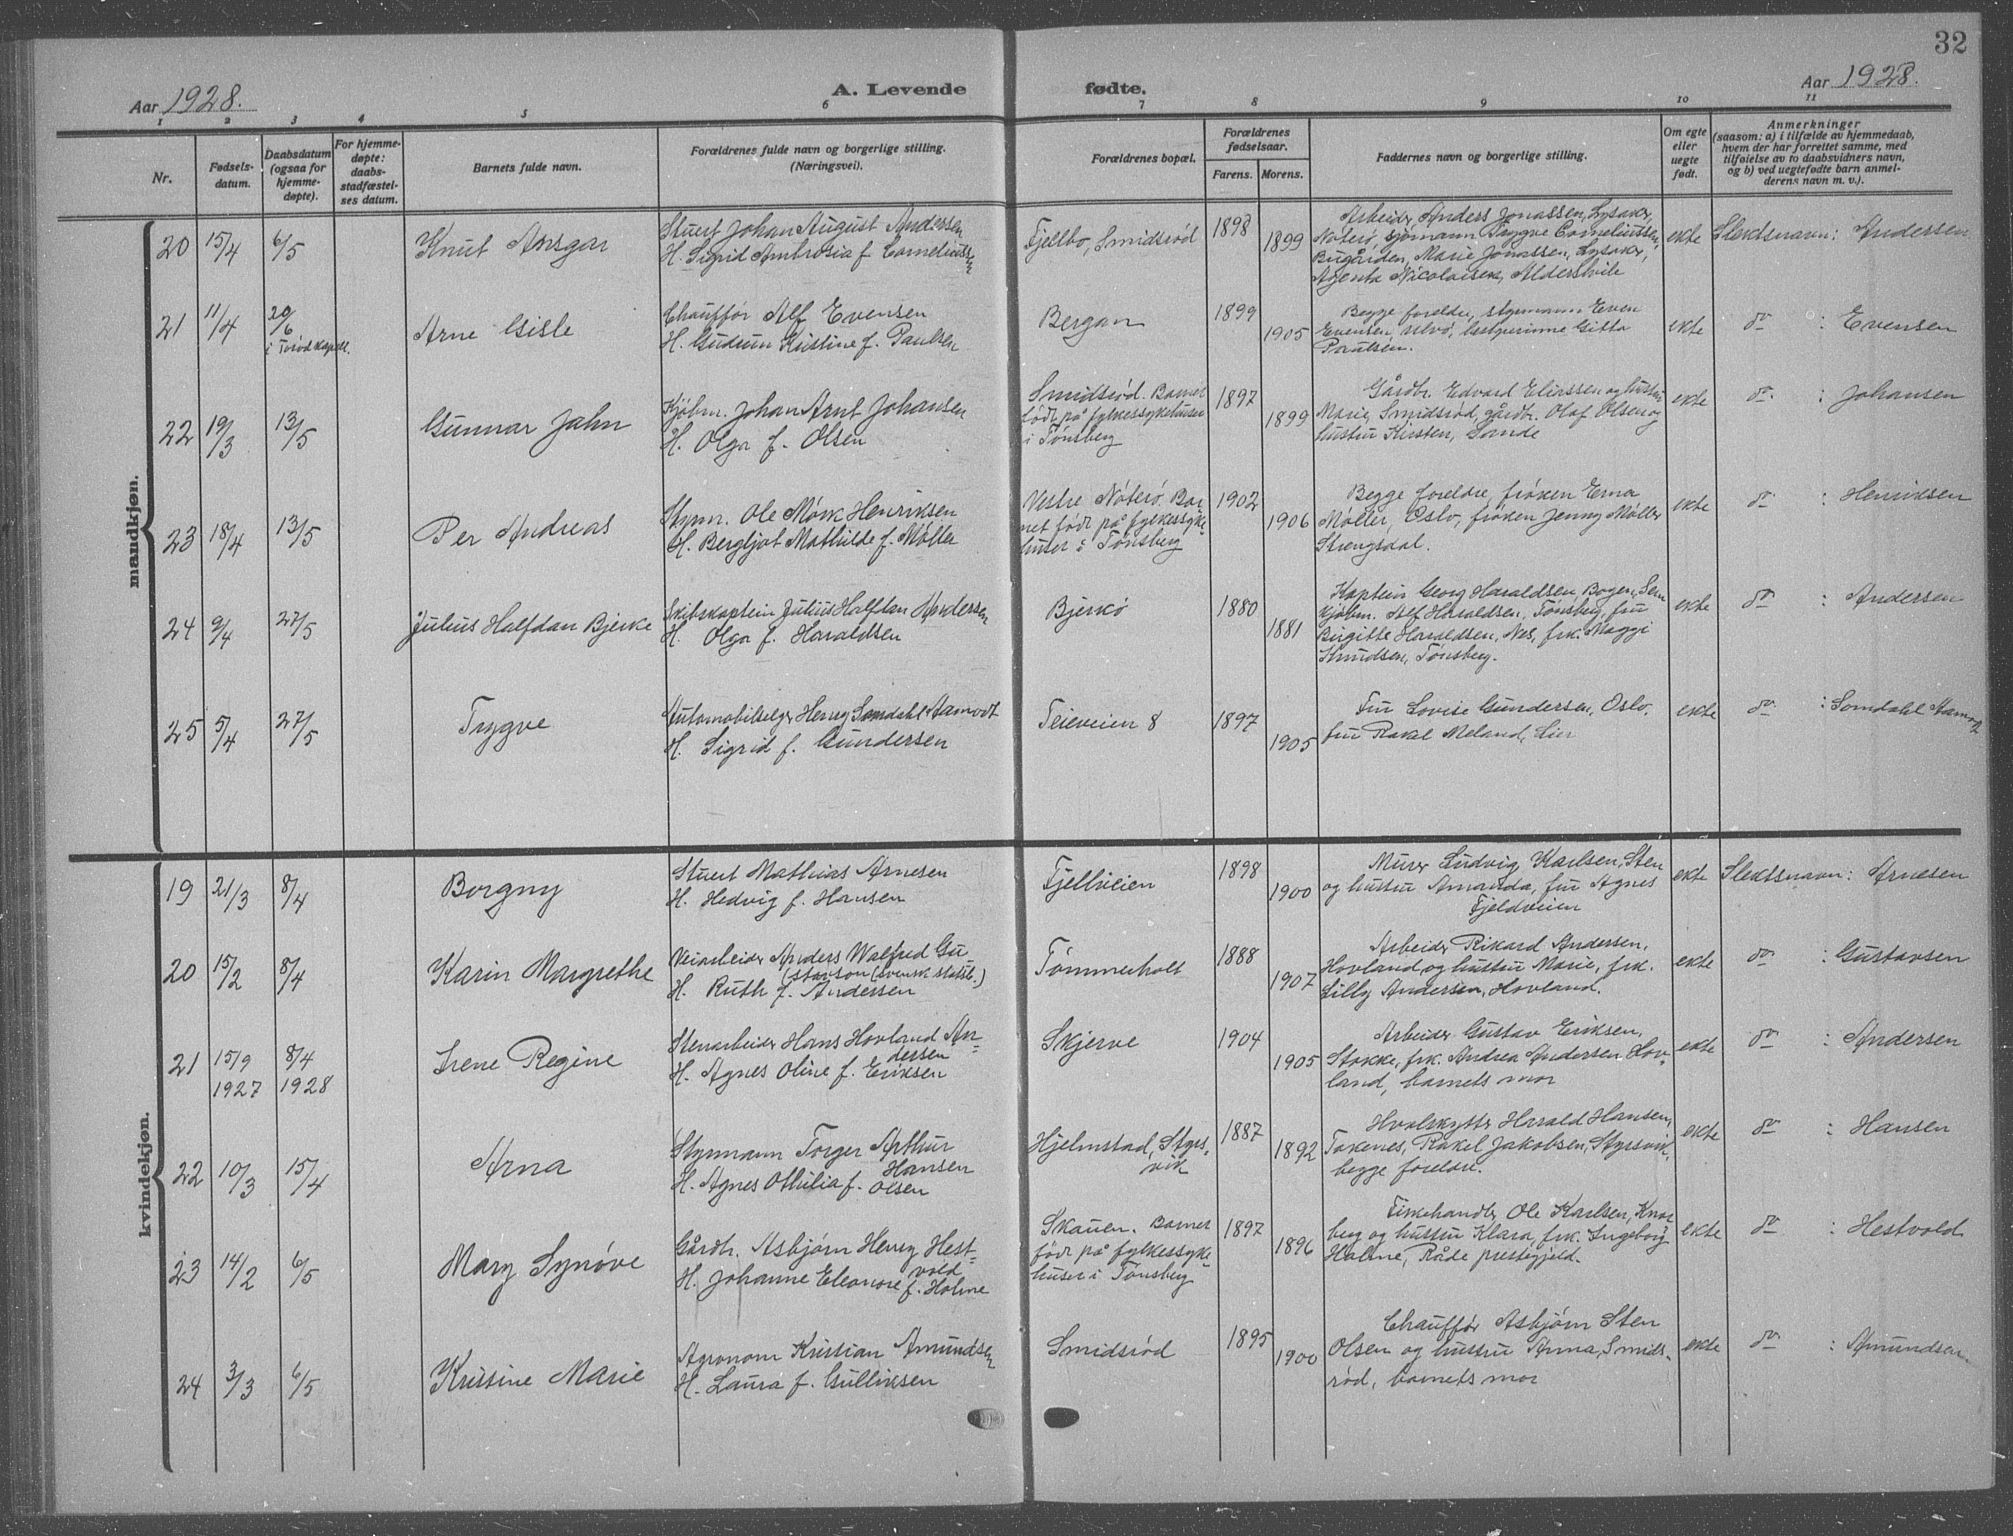 32
Aar 1928.
A. Levende
fødte.
Aar 1928.
1 2 3 4 5 6 7 8 9 10 11
Nr.
Fødsels-
datum.
Daabsdatum
(ogsaa for
hjemme-
døpte).
For hjemme-
døpte:
daabs-
stadfæstel-
ses datum.
Barnets fulde navn.
Forældrenes fulde navn og borgerlige stilling.
(Næringsvei).
Forældrenes bopæl.
Forældrenes
fødselsaar.
Farens. Morens.
Faddernes navn og borgerlige stilling.
Om egte
eller
uegte
født.
Anmerkninger
(saasom: a) i tilfælde av hjemmedaab,
hvem der har forrettet samme, med
tilføielse av to daabsvidners navn,
og b) ved uegtefødte barn anmel-
derens navn m. v.).
mandkjøn.
20 15/4 6/5 Knut Ansgar
Stuert Johan August Andersen
H. Sigrid Ambrosia f. Corneliussen
Fjellbo, Smidsrød
1898 1899
Arbeider Anders Jonassen, Lysaker,
Nøterø, sjømann Trygve Corneliussen,
Bugården, Marie Jonassen, Lysaker,
Agenta Nicolaisen, Aldershvile
ekte Slektsnavn: Andersen
21 11/4 20/6
i Torød kapell.
Arne Gisle
Chauffør Alf Evensen
H. Gudrun Kristine f. Paulsen
Bergan
1899 1905
Begge foreldre, styrmann Even
Evensen, Gista
Paulsen.
ekte do : Evensen
22 19/3 13/5 Gunnar Jahn
Kjøbm. Johan Arnt Johansen
H. Olga f. Olsen
Smidsrød. Barnet
født på fylkessykehuset
i Tønsberg
1897 1899
Gårdbr. Edvard Eliassen og hustru
Marie, Smidsrød, gårdbr. Olaf Olsen og
hustru Kirsten, Sande
ekte do : Johansen
23 18/4 13/5 Per Andreas
Styrm. Ole Mørk Henriksen
H. Bergljot Mathilde f. Møller
Vestre Nøterø. Bar-
net født på fylkessyke-
huset i Tønsberg
1902 1906
Begge foreldre, frøken Erna
Møller, Oslo, frøken Jenny Møller
Strengsdal.
ekte do : Henriksen
24 9/4 27/5 Julius Halfdan Bjerke
Skibskaptein Julius Halfdan Andersen
H. Olga f. Haraldsen
Bjerkø
1880 1881
Kaptein Georg Haraldsen, Bogen, Sem
kjøbm. Alf Haraldsen, Tønsberg, fru
Birgitte Haraldsen, Nes, frk. Maggi
Knudsen, Tønsberg.
ekte do : Andersen
25 5/4 27/5 Trygve
Automobilselger Henry Somdahl Aamodt
H. Sigrid f. Gundersen
Teieveien 8
1897 1905
Fru Lovise Gundersen, Oslo,
fru Rakel Meland, Lier
ekte do : Somdahl Aamodt
kvindekjøn.
19 21/3 8/4 Borgny
Stuert Mathias Arnesen
H. Hedvig f. Hansen
Fjellveien
1898 1900
Murer Ludvig Karlsen, Sten
og hustru Amanda, fru Agnes
Fjeldveien
ekte Slektsnavn: Arnesen
20 15/2 8/4 Karin Margrethe
Veiarbeider Anders Walfred Gu-
stavson (svensk statsb.)
H. Ruth f. Andersen
Tømmerholt
1888 1907
Arbeider Rikard Andersen,
Hovland og hustru Marie, frk.
Lilly Andersen, Hovland.
ekte do : Gustavsen
21 15/9 8/4
1927 1928
Irene Regine
Stenarbeider Hans Hovland An-
dersen
H. Agnes Oline f. Eriksen
Skjerve
1904 1905
Arbeider Gustav Eriksen,
Stokke, frk. Andrea Andersen, Hov-
land, barnets mor
ekte do : Andersen
22 10/3 15/4 Arna
Styrmann Torger Arthur
Hansen
H. Agnes Othilia f. Olsen
Hjelmstad, Styrs-
vik
1887 1892
Hvalskytter Harald Hansen,
Toxenes, Rakel Jakobsen, Styrsvik,
begge foreldre.
ekte do : Hansen
23 14/2 6/5 Mary Synøve
Gårdbr. Asbjørn Henry Hest-
vold
H. Johanne Eleonore f. Holme
Skauen. Barnet
født på fylkessyke-
huset i Tønsberg
1897 1896
Fiskehandler Ole Karlsen, Knar-
berg og hustru Klara, frk. Ingeborg
Holme, Råde prestegjeld.
ekte do : Hestvold
24 3/3 6/5 Kristine Marie
Agronom Kristian Amundsen
H. Laura f. Gulliksen
Smidsrød
1895 1900
Chauffør Asbjørn Sten
Olsen og hustru Anna, Smids-
rød, barnets mor
ekte do : Amundsen